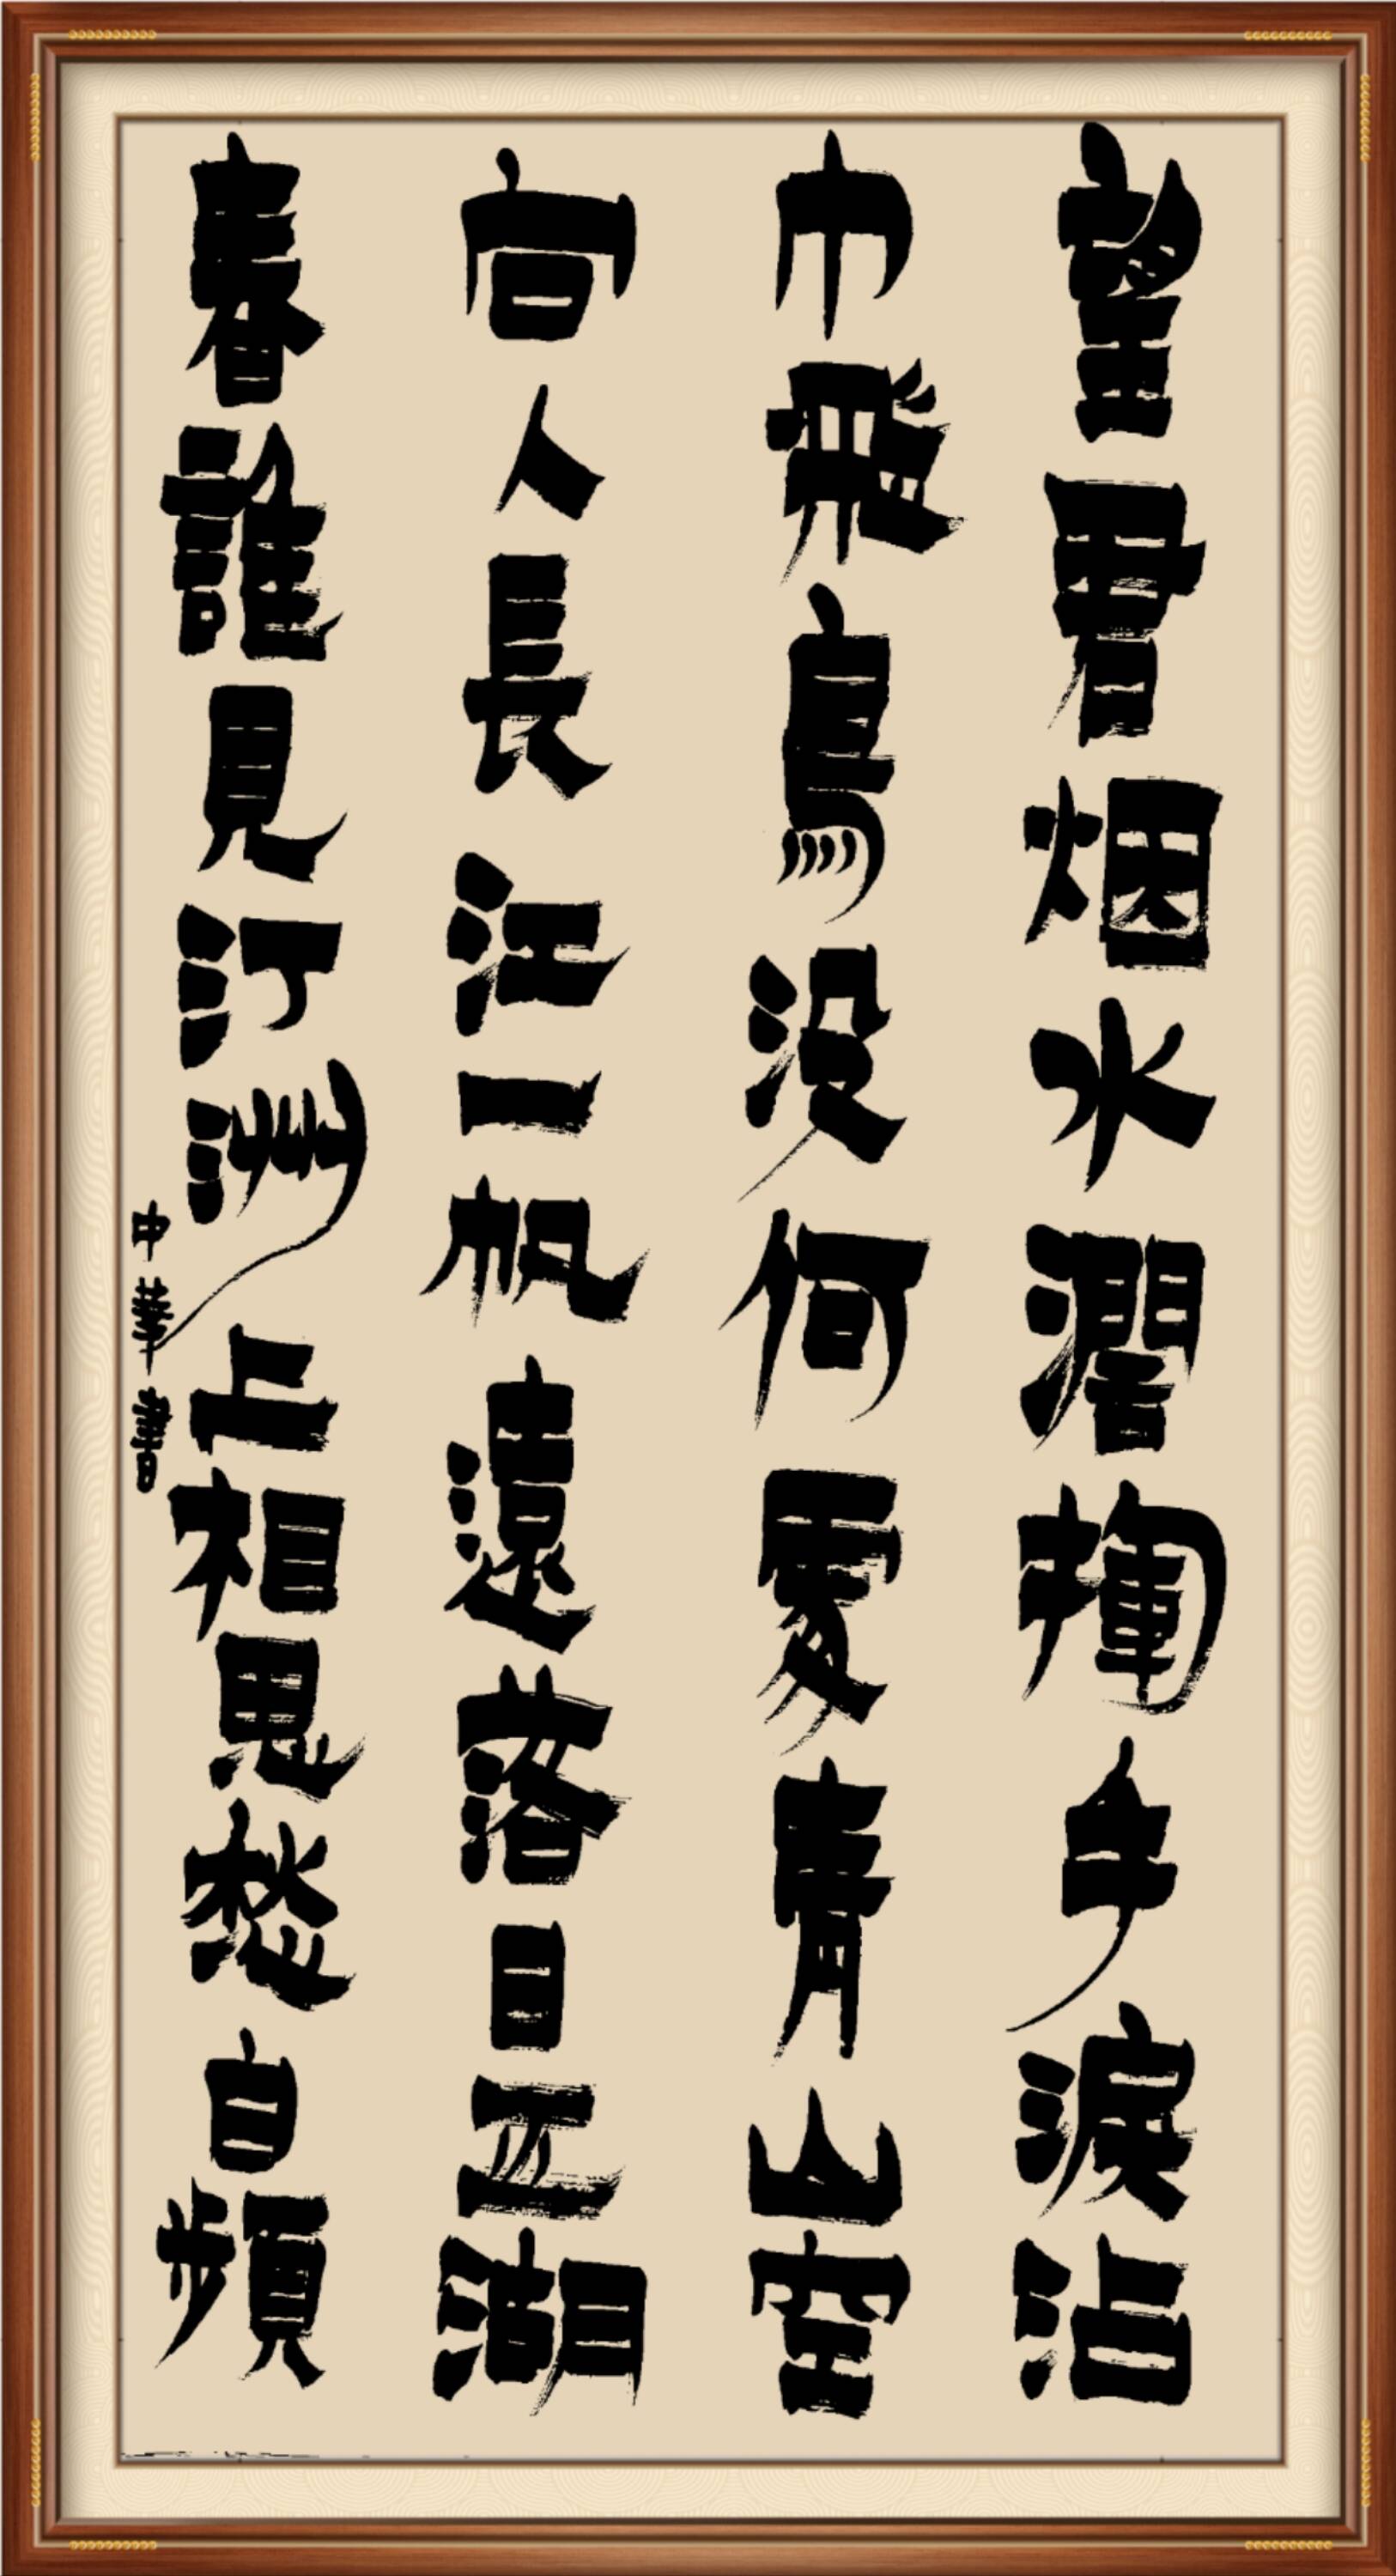 望君烟水濶揮手淚沾
巾飛鳥没何處青山空
向人長江一帆遠落日五湖
春誰見汀洲上相思愁白頻
中華書